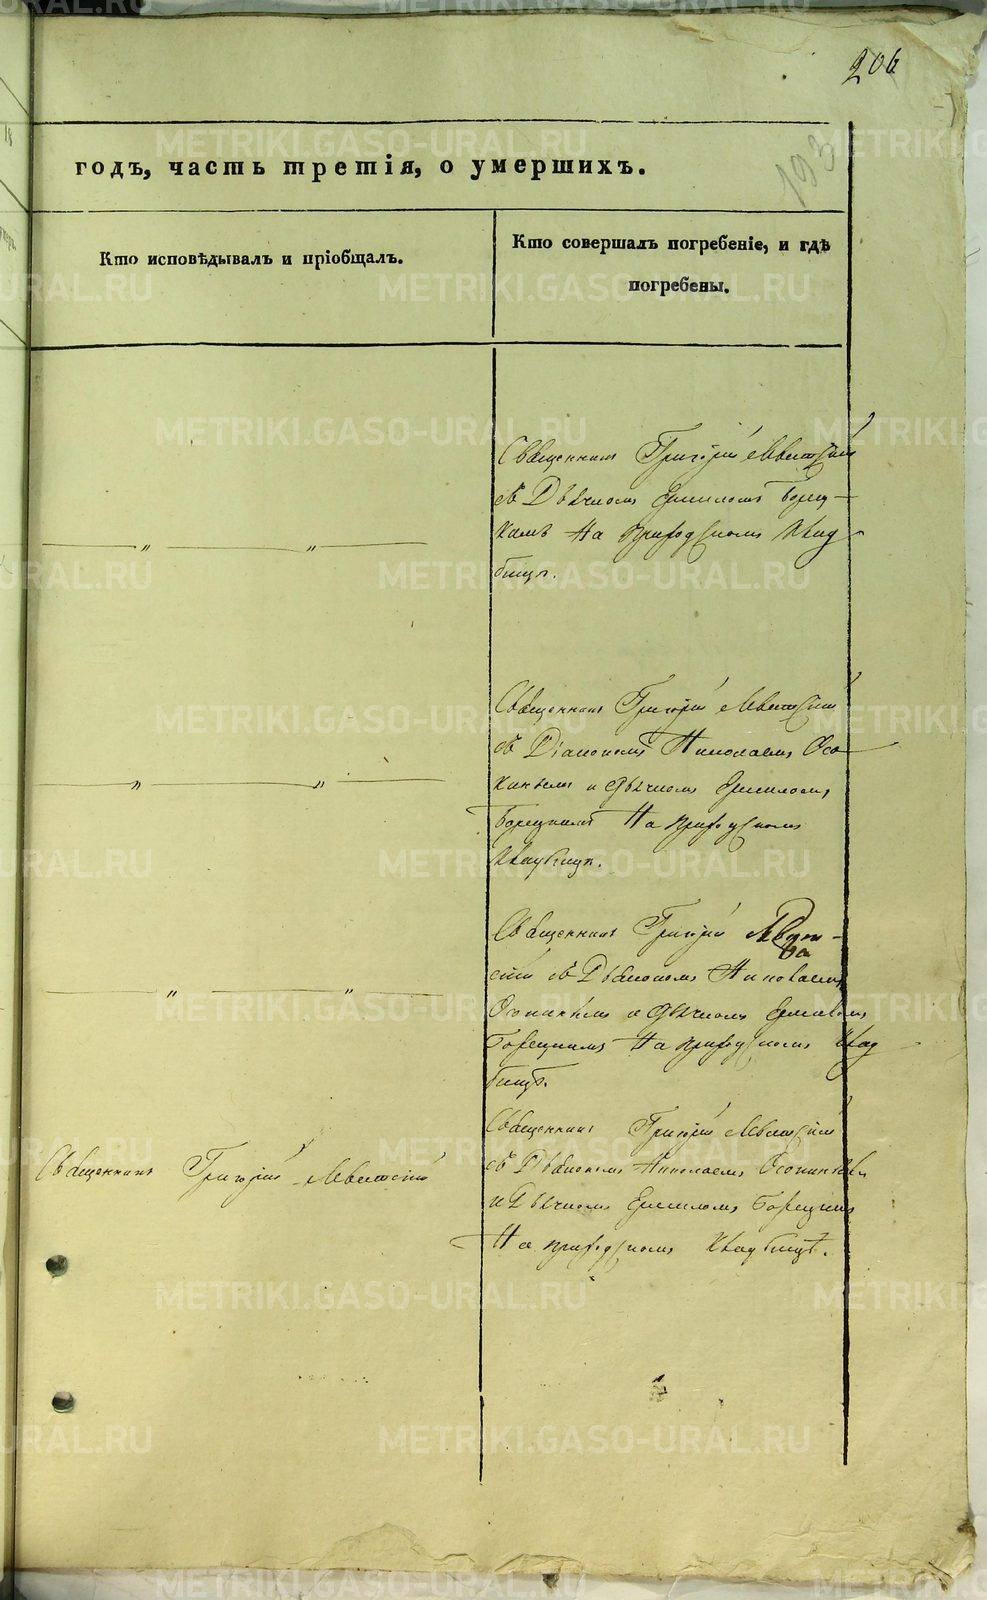 206
193
годъ, часть третія, о умершихъ.
Кто исповѣдывалъ и пріобщалъ.
Кто совершалъ погребеніе, и гдѣ
погребены.
Священникъ Григорій
съ Дьячкомъ Ермиломъ Борец-
кимъ На приходскомъ клад-
бищѣ.
Священникъ Григорій
съ Діакономъ Николаемъ Осо-
кинымъ и Дьячкомъ Ермиломъ
Борецкимъ На приходскомъ
кладбищѣ.
Священникъ Григорій
съ Діакономъ Николаемъ
Осокинымъ и Дьячкомъ Ермиломъ
Борецкимъ На приходскомъ клад
бищѣ.
Священникъ Григорій
съ Діакономъ Николаемъ Осокинымъ
и Дьячкомъ Ермиломъ Борецкимъ
На приходскомъ кладбищѣ.
Священникъ Григорій
METRIKI.GASO-URAL.RU